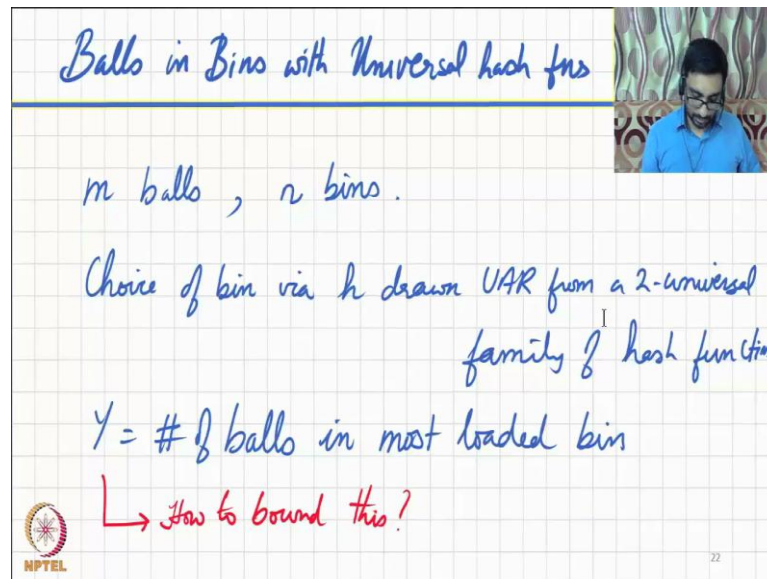 Balls in Bins with Universal hash fns
m balls , n bins.
Choice of bin via h drawn UAR from a 2-universal
family of hash function
Y = # of balls in most loaded bin
How to bound this?
NPTEL
22